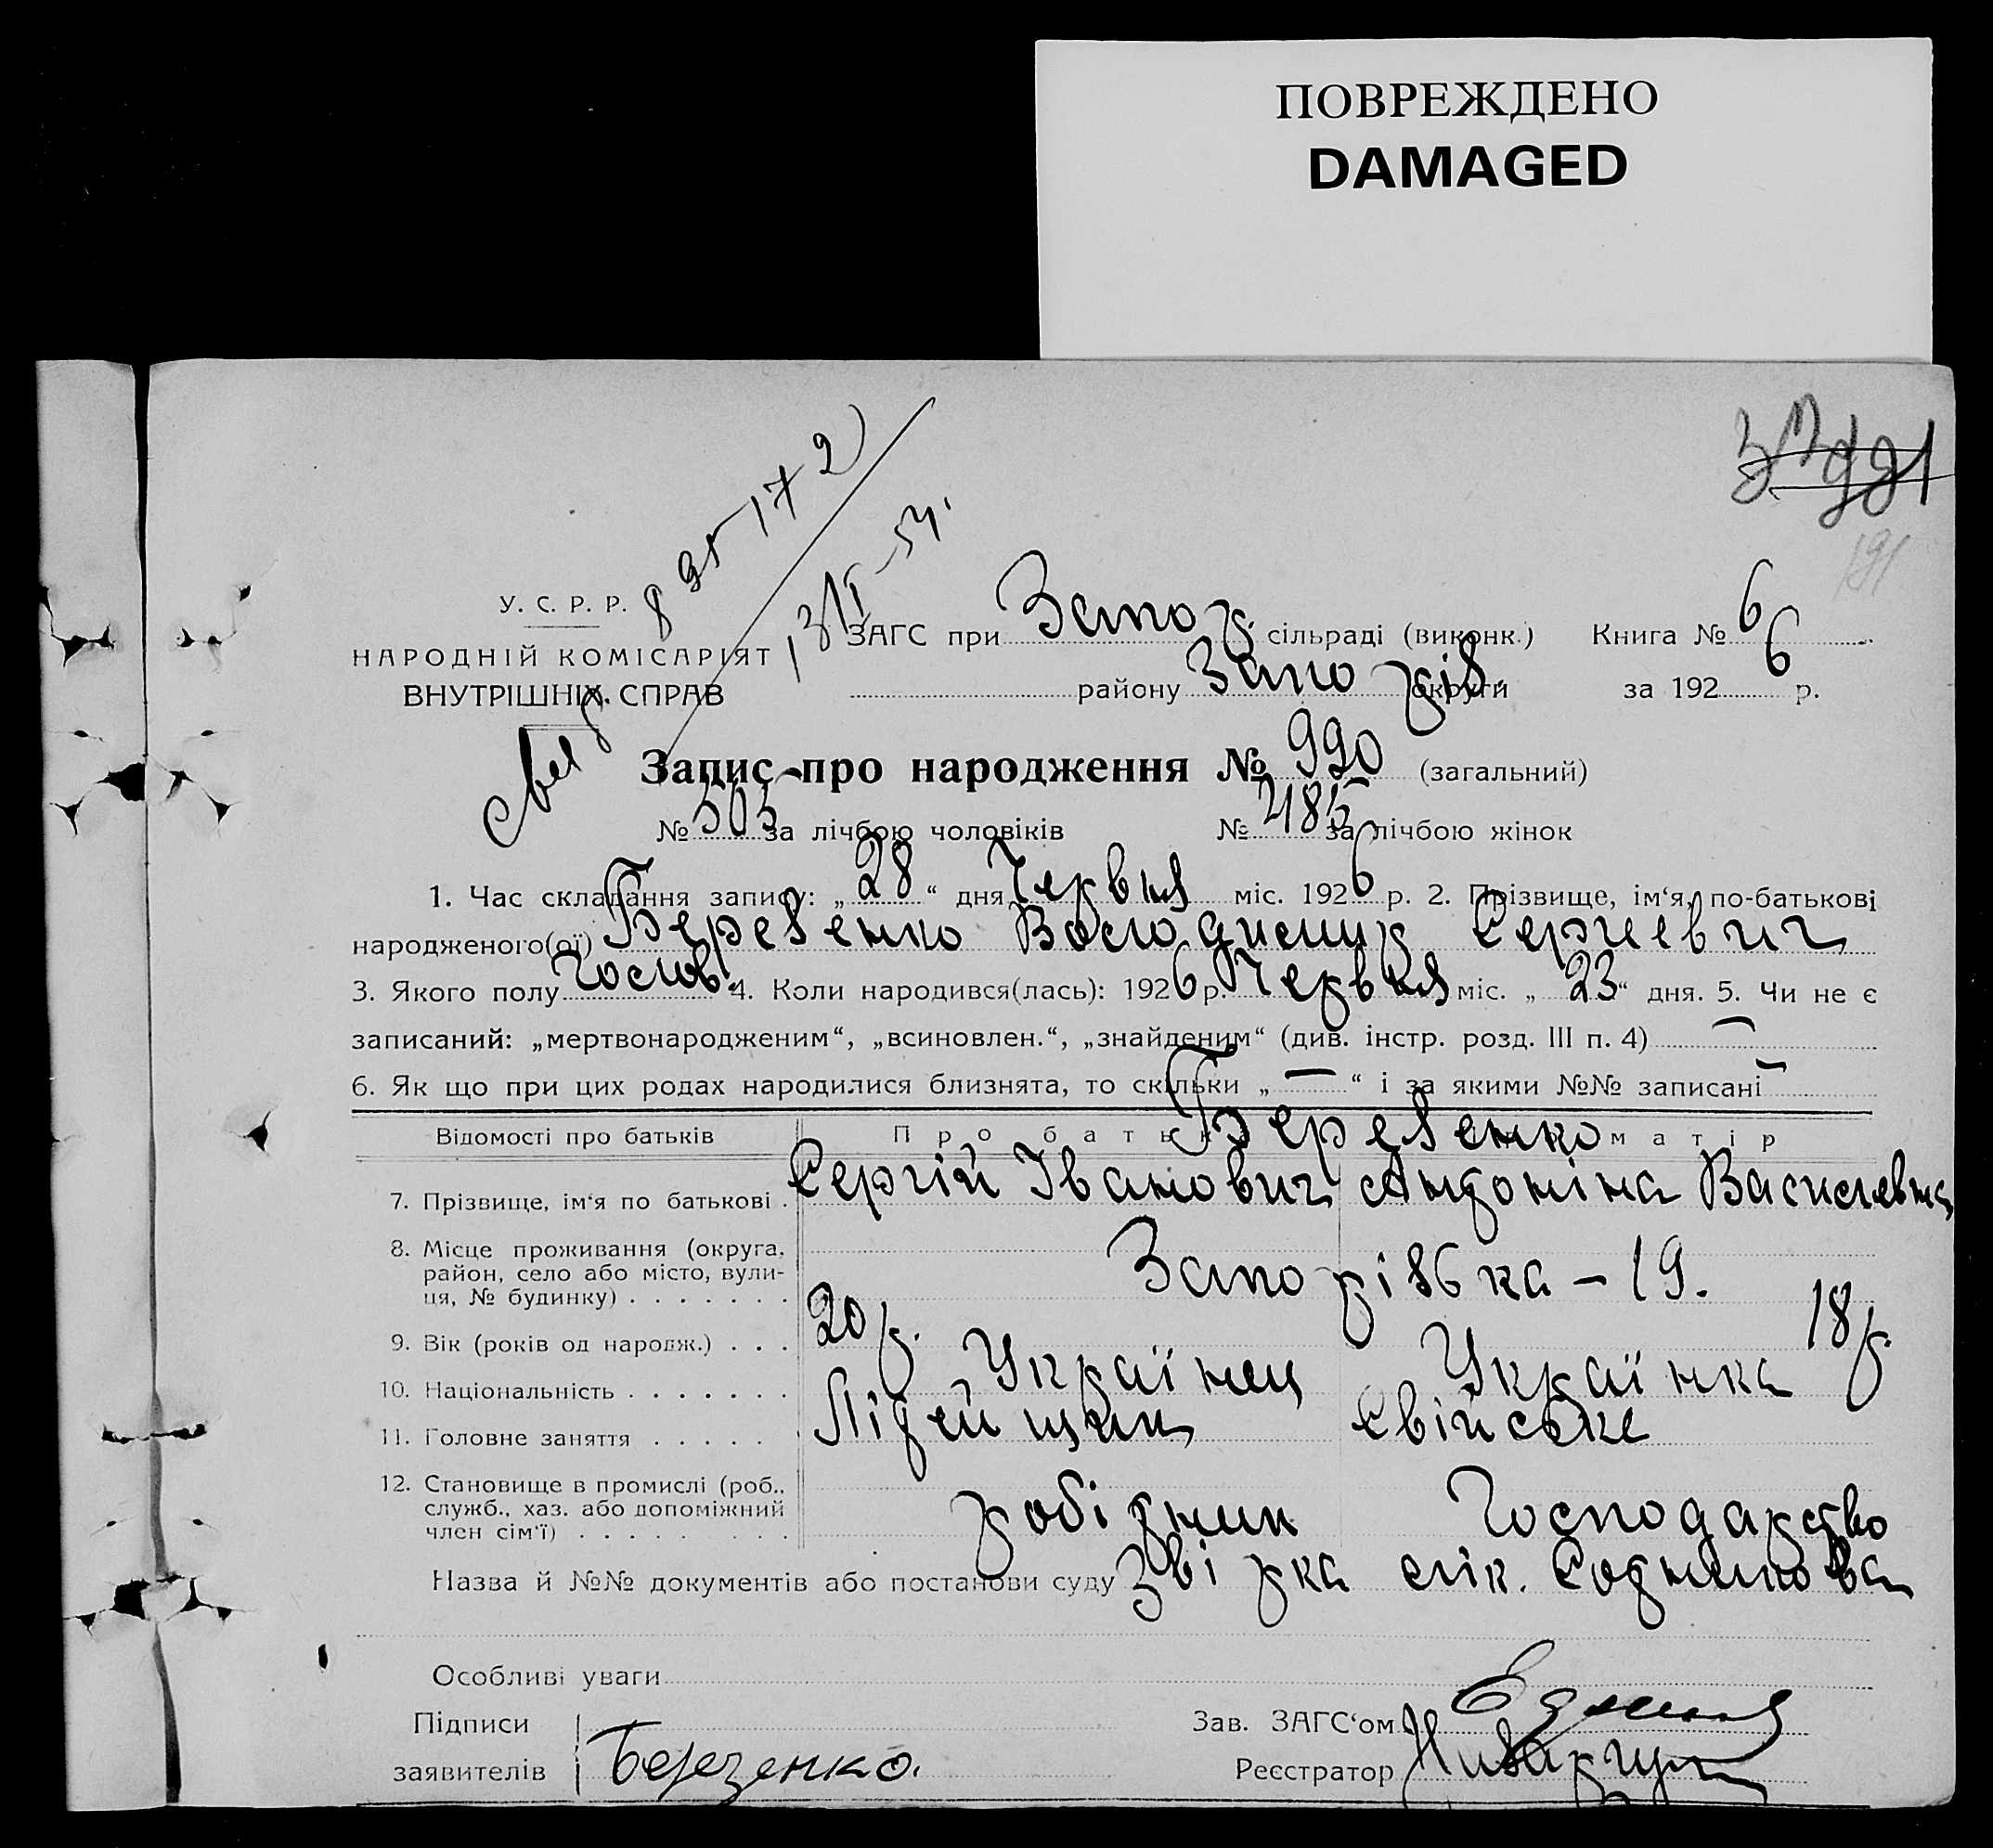 ПОВРЕЖДЕНО
DAMAGED
191
У. С. Р. Р.
НАРОДНІЙ КОМІСАРІЯТ
ВНУТРІШНІХ СПРАВ
895172
ЗАГС при Запор. сільраді (виконк.) Книга № 6
району Запоріз. округи за 1926 р.
Запис про народження № 990 (загальний)
№ 505 за лічбою чоловіків № 485 за лічбою жінок
1. Час складання запису: „28“ дня Червня міс. 1926 р. 2. Прізвище, ім‘я, по-батькові
народженого(ої) Березенко Володимир Сергиевич
3. Якого полу Чолов. 4. Коли народився(лась): 1926 р. Червня міс. „23“ дня. 5. Чи не є
записаний: „мертвонародженим“, „всиновлен.“, „знайденим“ (див. інстр. розд. III п. 4) —
6. Як що при цих родах народилися близнята, то скільки „—“ і за якими №№ записані —
Березенко
Відомості про батьків Про батька матір
7. Прізвище, ім‘я по батькові . Сергій Іванович Антоніна Василевна
8. Місце проживання (округа, район, село або місто, вулиця, № будинку) . . . . . . . Запорізька – 19.
9. Вік (років од народж.) . . . 20 р. 18 р.
10. Національність . . . . . . . Українец Українка
11. Головне заняття . . . . . Лідейщик Свійське
12. Становище в промислі (роб., служб., хаз. або допоміжний член сім‘ї) . . . . . . . . . робітник Господарство
Назва й №№ документів або постанови суду Звірка лік.
Особливі уваги
Підписи Зав. ЗАГС‘ом
заявителів Березенко. Реєстратор